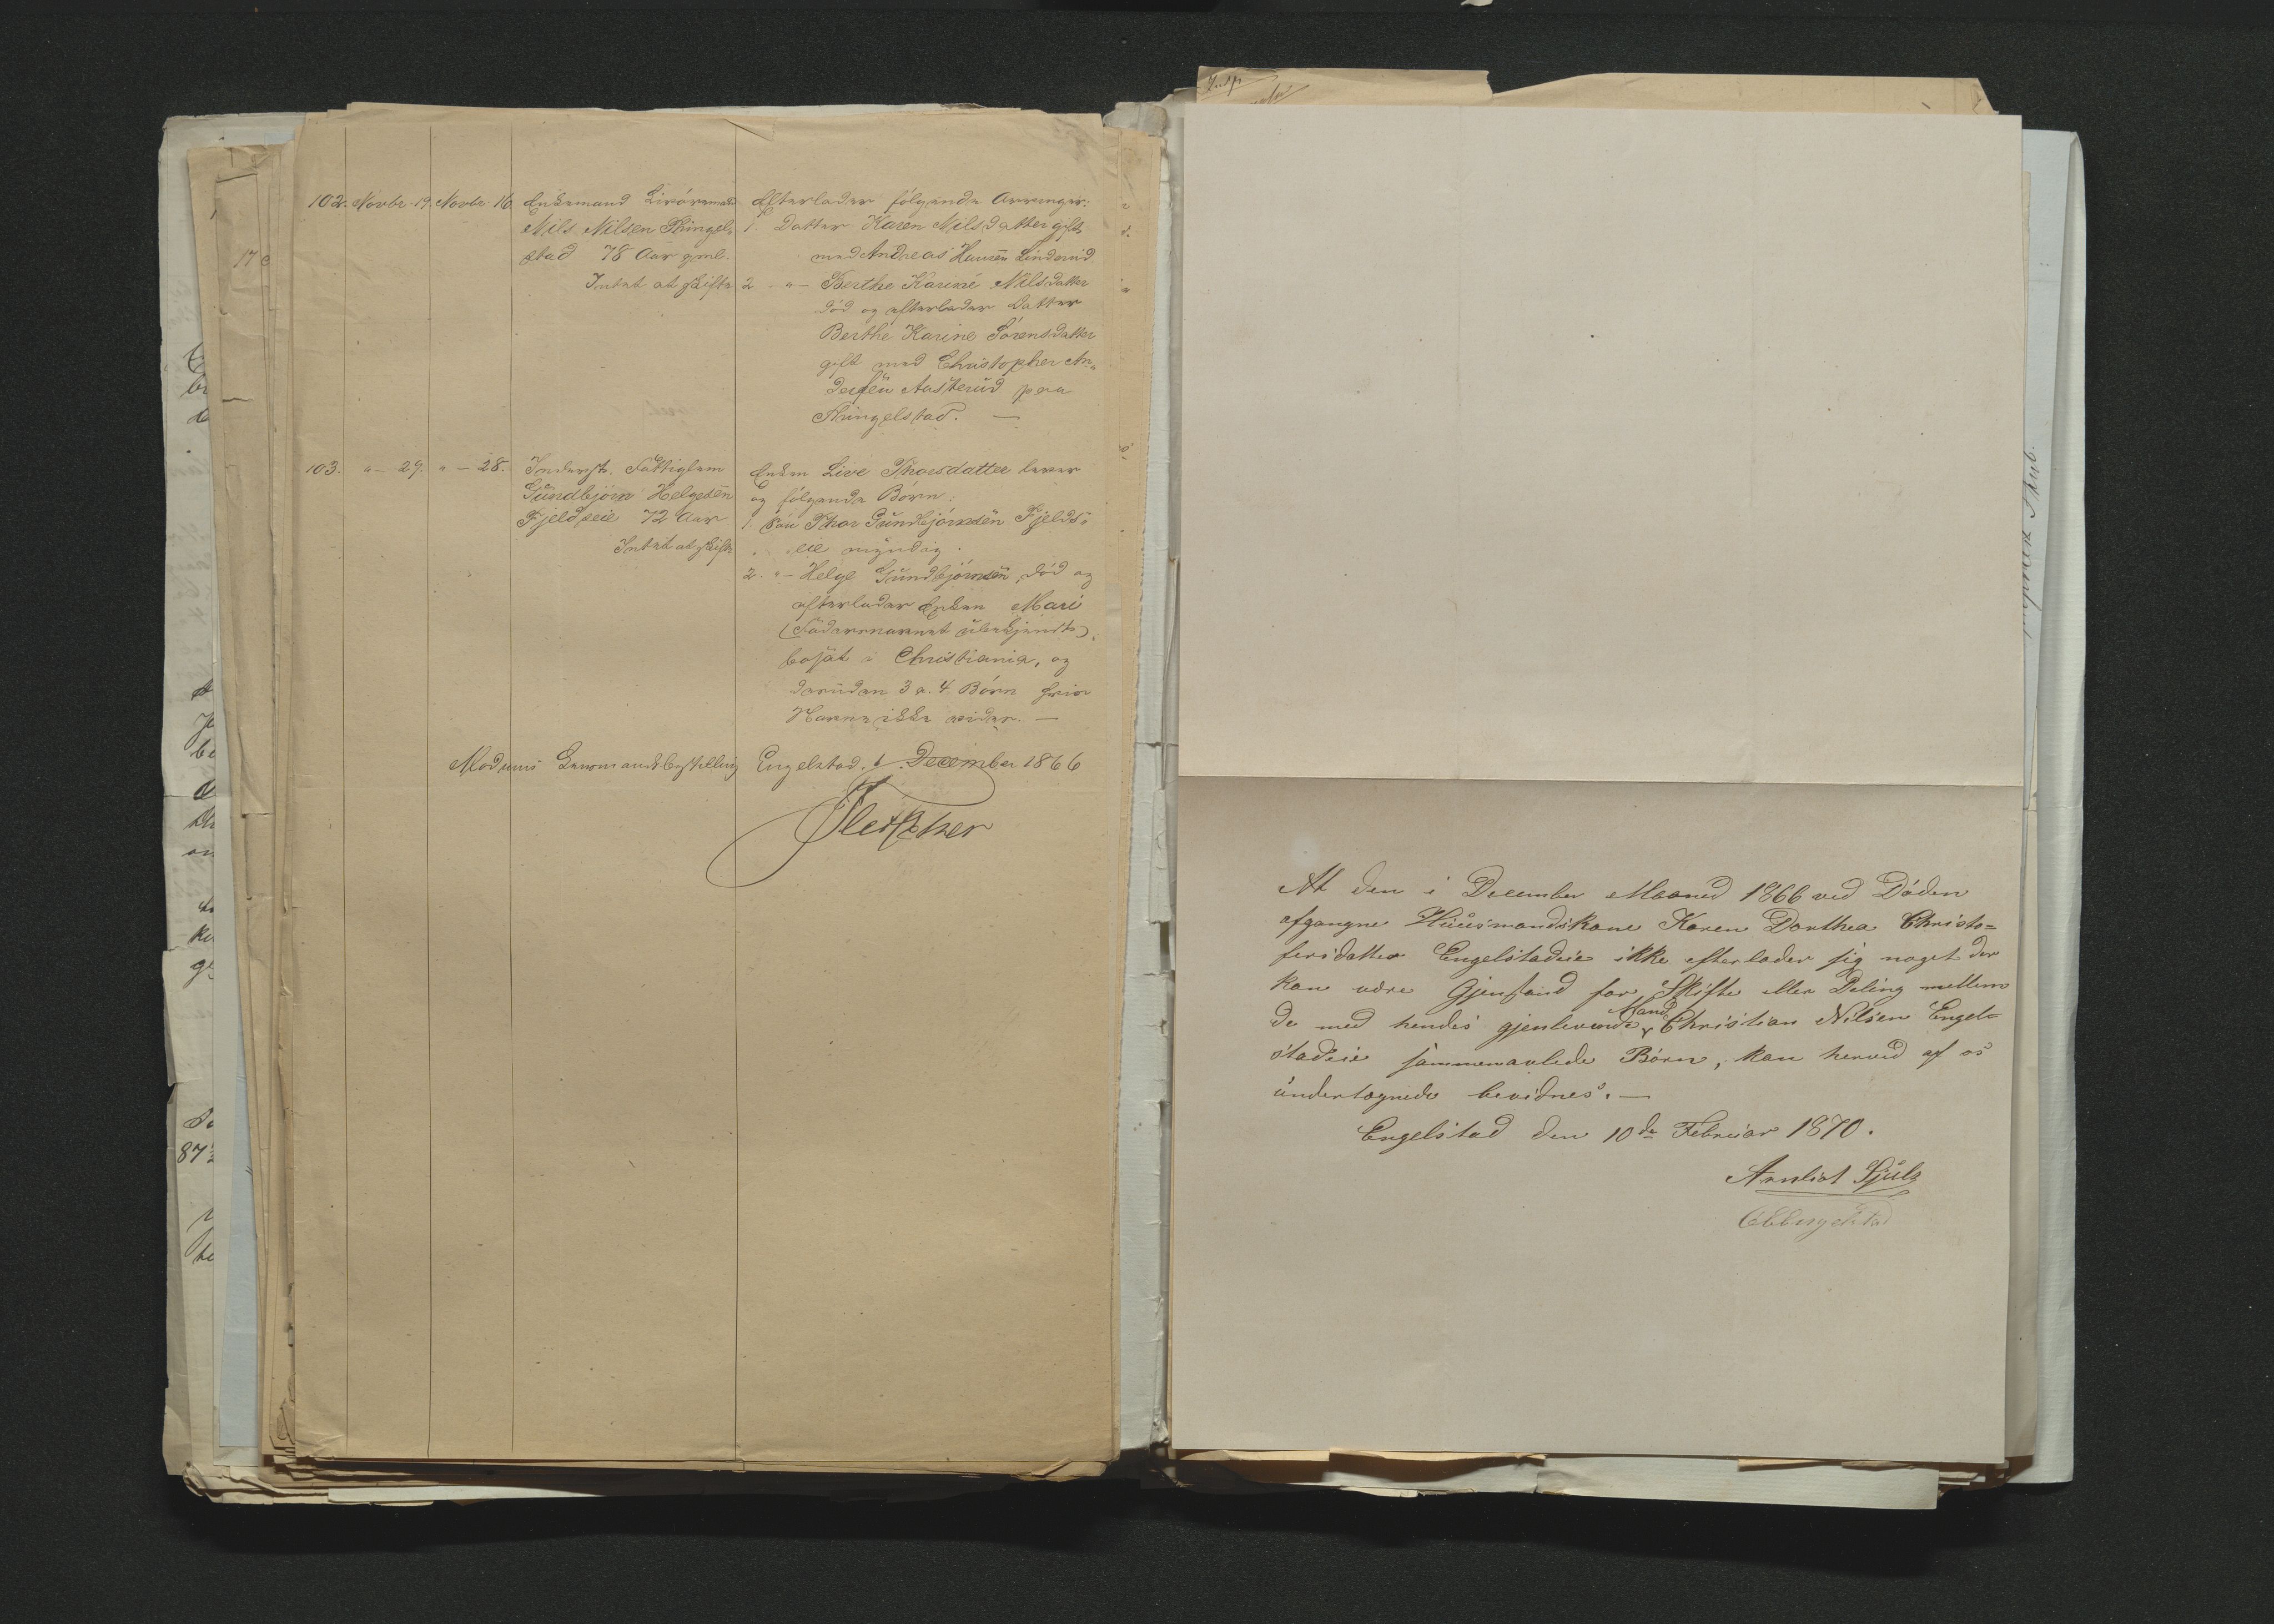 102. Novbr. 19. Novbr. 16. Enkemand Livøremand
Nils Nilsen Thingel-
stad 78 Aar gml.
Intet at skifte
Efterlader følgende Arvinger:
1. Datter Karen Nilsdatter gift
med Andreas Hansen Linderud
2 " — Berthe Karine Nilsdatter
død og efterlader Datter
Berthe Karine Sörensdatter
gift med Christopher An-
dersen Aasterud paa
Thingelstad. —
103. " — 29. " — 28. Inderst, Fattiglem
Gundbjørn Helgesen
Fjeldseie 72 Aar
Intet at skifte
Enken Live Thorsdatter lever
og følgende Börn:
1. Søn Thor Gundbjørnsen Fjelds-
eie myndig.
2. " — Helge Gundbjørnsen, død og
efterlader Enken Mari
(Födersnavnet ubekjendt),
bosat i Christiania, og
desuden 3 a. 4 Börn hvis
Navne ikke vides. —
Modums Lensmandsbestilling Engelstad, 1 December 1866
Fletscher
At den i December Maaned 1866 ved Døden
afgangne Huusmandskone Karen Dorthea Christo-
fersdatter Engelstadeie ikke efterlader sig noget der
kan være Gjenstand for Skifte eller Deling mellem
de med hendes gjenlevende Mand Christian Nilsen Engel-
stadeie sammenavlede Börn, kan herved af os
undertegnede bevidnes. —
Engelstad den 10de Februar 1870.
Arnliot